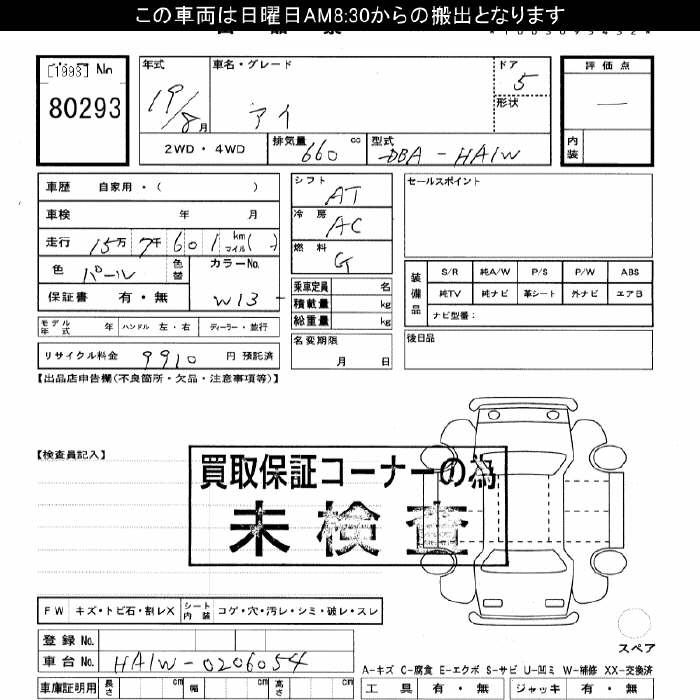 この車両は日曜日AM8:30からの搬出となります
[1993] No
80293
年式
19/8月
車名・グレード
アイ
ドア
5
形状
評価点
—
内装
2WD・4WD
排気量
660 cc
型式
DBA-HA1W
車歴 自家用・( )
車検 年 月
走行 15万 7千 601 km マイル( )
色 パール
色替
カラーNo.
W13-
保証書 有・無
モデル年式 年
ハンドル 左・右
ディーラー・並行
リサイクル料金 9910 円 預託済
シフト
AT
冷房
AC
燃料
G
乗車定員 名
積載量 kg
総重量 kg
名変期限
月 日
セールスポイント
装備品
S/R 純A/W P/S P/W ABS
純TV 純ナビ 革シート 外ナビ エアB
ナビ型番：
後日品
【出品店申告欄(不良箇所・欠品・注意事項等)】
【検査員記入】
買取保証コーナーの為
未検査
FW キズ・トビ石・割レX
シート内装 コゲ・穴・汚レ・シミ・破レ・スレ
登録 No.
車台 No. HA1W-0206054
車庫証明用 長さ cm 幅 cm 高さ cm
スペア
A-キズ C-腐食 E-エクボ S-サビ U-凹ミ W-補修 XX-交換済
工具 有・無
ジャッキ 有・無